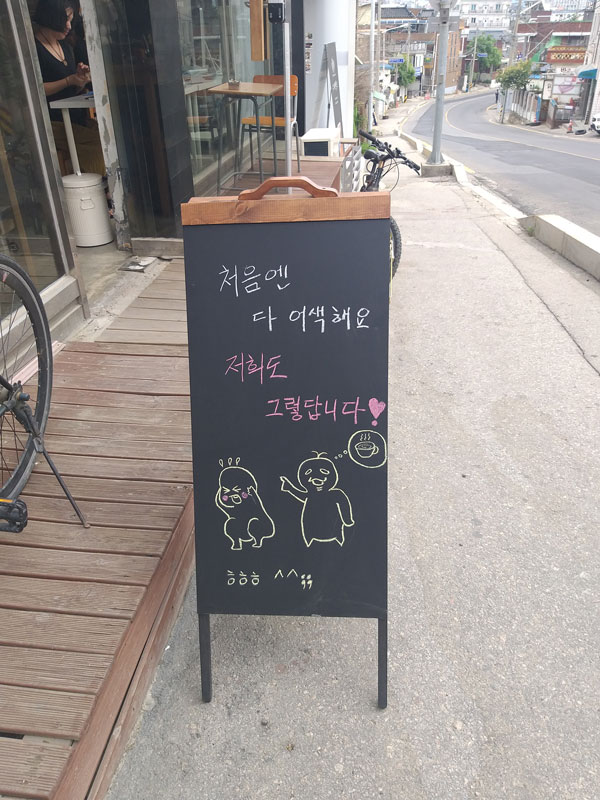 처음엔
다 어색해요
저희도
그렇답니다!
흥흥흥 ^^;;